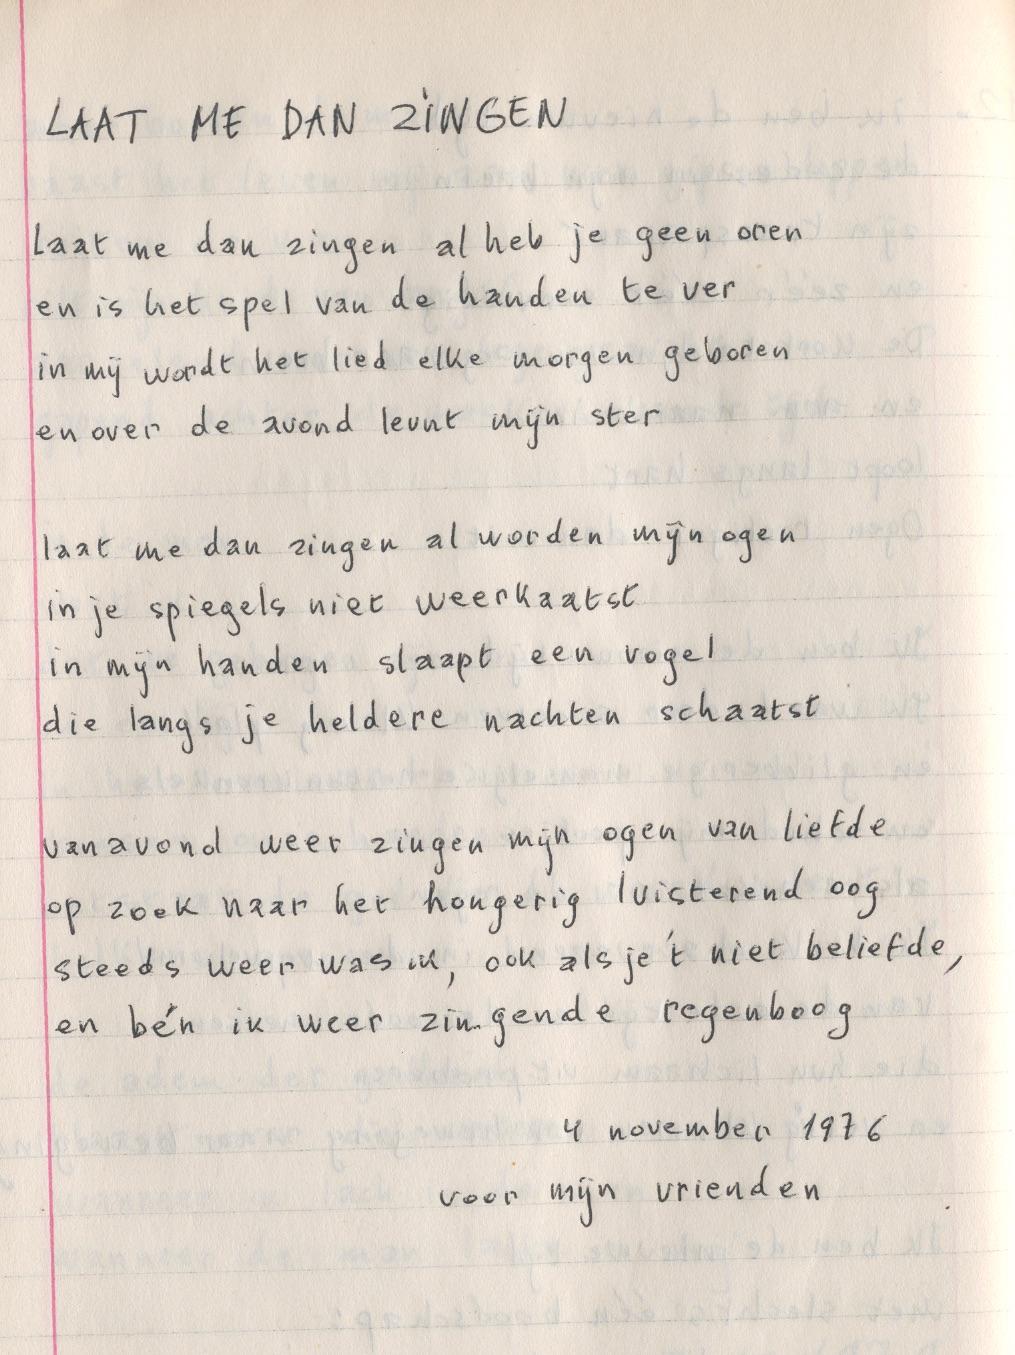 LAAT ME DAN ZINGEN
Laat me dan zingen al heb je geen oren
en is het spel van de handen te ver
in mij wordt het lied elke morgen geboren
en over de avond leunt mijn ster
laat me dan zingen al worden mijn ogen
in je spiegels niet weerkaatst
in mijn handen slaapt een vogel
die langs je heldere nachten schaatst
vanavond weer zingen mijn ogen van liefde
op zoek naar het hongerig luisterend oog
steeds weer was ik, ook als je 't niet beliefde,
en bén ik weer zingende regenboog
4 november 1976
voor mijn vrienden